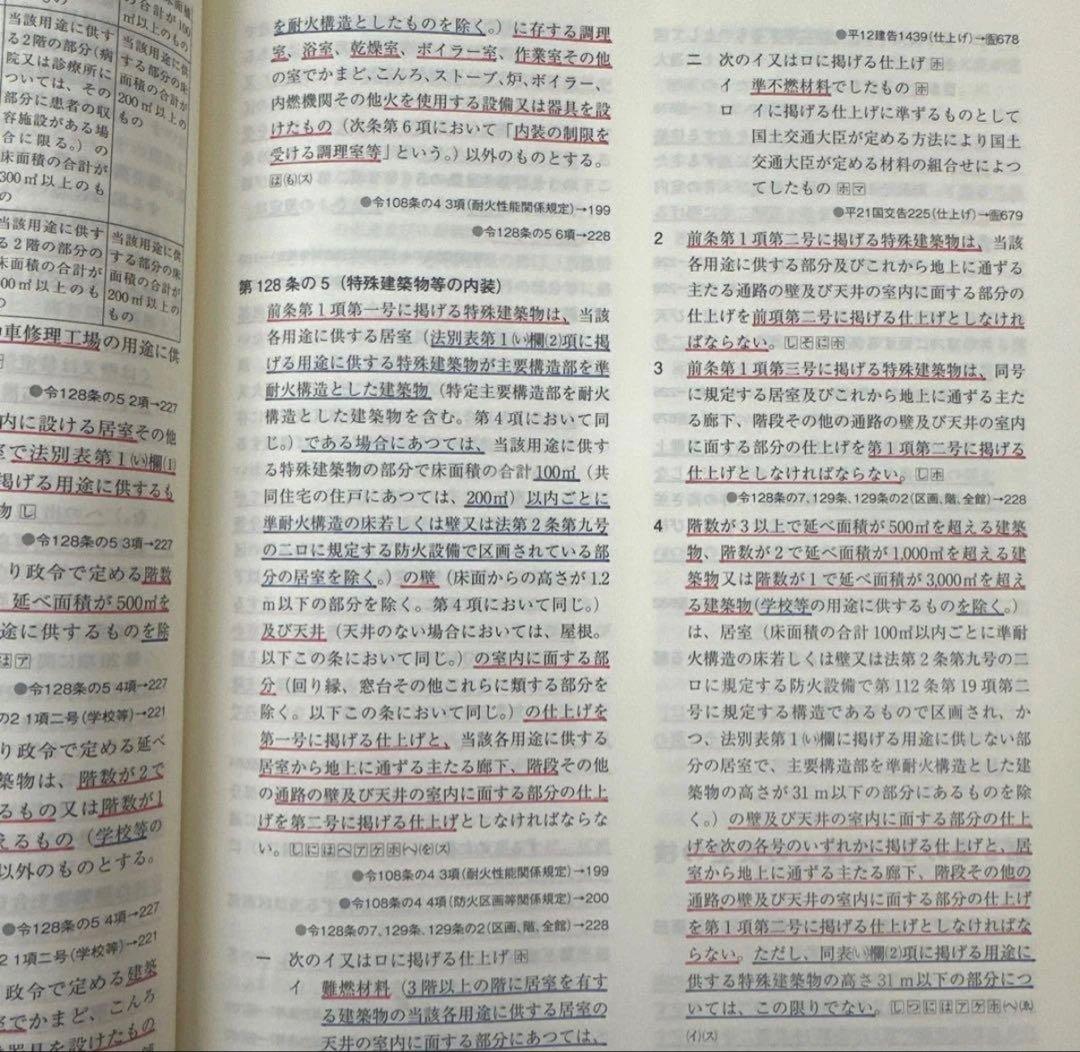 当該用途に供す
る2階の部分(病
院又は診療所に
ついては、その
部分に患者の収
容施設がある場
合に限る。)の
床面積の合計が
300㎡以上のも
の
の合計が100
㎡以上のもの
当該用途に供
する部分の床
面積の合計が
200㎡以上の
もの
当該用途に供す
る2階の部分の
床面積の合計が
00㎡以上のも
の
当該用途に供
する部分の床
面積の合計が
200㎡以上の
もの
車修理工場の用途に供
●令128条の5 2項→227
内に設ける居室その他
で法別表第1(い)欄(1)
掲げる用途に供するも
物 し
●令128条の5 3項→227
り政令で定める階数
延べ面積が500㎡を
途に供するものを除
はア
●令128条の5 4項→227
の2 1項二号(学校等)→221
り政令で定める延べ
築物は、階数が2で
るもの又は階数が1
えるもの(学校等の
以外のものとする。
●令128条の5 4項→227
2 1項二号(学校等)→221
政令で定める建築
室でかまど、こんろ
器具を設けたもの
を耐火構造としたものを除く。)に存する調理
室、浴室、乾燥室、ボイラー室、作業室その他
の室でかまど、こんろ、ストーブ、炉、ボイラー、
内燃機関その他火を使用する設備又は器具を設
けたもの(次条第6項において「内装の制限を
受ける調理室等」という。)以外のものとする。
は(も)(ス)
●令108条の4 3項(耐火性能関係規定)→199
●令128条の5 6項→228
第128条の5(特殊建築物等の内装)
前条第1項第一号に掲げる特殊建築物は、当該
各用途に供する居室(法別表第1(い)欄(2)項に掲
げる用途に供する特殊建築物が主要構造部を準
耐火構造とした建築物(特定主要構造部を耐火
構造とした建築物を含む。第4項において同
じ。)である場合にあつては、当該用途に供す
る特殊建築物の部分で床面積の合計100㎡(共
同住宅の住戸にあつては、200㎡)以内ごとに
準耐火構造の床若しくは壁又は法第2条第九号
の二ロに規定する防火設備で区画されている部
分の居室を除く。)の壁(床面からの高さが1.2
m以下の部分を除く。第4項において同じ。)
及び天井(天井のない場合においては、屋根。
以下この条において同じ。)の室内に面する部
分(回り縁、窓台その他これらに類する部分を
除く。以下この条において同じ。)の仕上げを
第一号に掲げる仕上げと、当該各用途に供する
居室から地上に通ずる主たる廊下、階段その他
の通路の壁及び天井の室内に面する部分の仕上
げを第二号に掲げる仕上げとしなければならな
い。しにはヘアケホへ(を)(ス)
●令108条の4 3項(耐火性能関係規定)→199
●令108条の4 4項(防火区画等関係規定)→200
●令128条の7、129条、129条の2(区画、階、全館)→228
一 次のイ又はロに掲げる仕上げ ホ
イ 難燃材料(3階以上の階に居室を有す
る建築物の当該各用途に供する居室の
天井の室内に面する部分にあつては、
●平12建告1439(仕上げ)→告678
二 次のイ又はロに掲げる仕上げ ホ
イ 準不燃材料でしたもの ホ
ロ イに掲げる仕上げに準ずるものとして
国土交通大臣が定める方法により国土
交通大臣が定める材料の組合せによつ
てしたもの ホマ
●平21国交告225(仕上げ)→告679
2 前条第1項第二号に掲げる特殊建築物は、当該
各用途に供する部分及びこれから地上に通ずる
主たる通路の壁及び天井の室内に面する部分の
仕上げを前項第二号に掲げる仕上げとしなけれ
ばならない。しそにホ
3 前条第1項第三号に掲げる特殊建築物は、同号
に規定する居室及びこれから地上に通ずる主た
る廊下、階段その他の通路の壁及び天井の室内
に面する部分の仕上げを第1項第二号に掲げる
仕上げとしなければならない。しホ
●令128条の7、129条、129条の2(区画、階、全館)→228
4 階数が3以上で延べ面積が500㎡を超える建築
物、階数が2で延べ面積が1,000㎡を超える建
築物又は階数が1で延べ面積が3,000㎡を超え
る建築物(学校等の用途に供するものを除く。)
は、居室(床面積の合計100㎡以内ごとに準耐
火構造の床若しくは壁又は法第2条第九号の二
ロに規定する防火設備で第112条第19項第二
号に規定する構造であるもので区画され、か
つ、法別表第1(い)欄に掲げる用途に供しない部
分の居室で、主要構造部を準耐火構造とした建
築物の高さが31m以下の部分にあるものを除
く。)の壁及び天井の室内に面する部分の仕上
げを次の各号のいずれかに掲げる仕上げと、居
室から地上に通ずる主たる廊下、階段その他の
通路の壁及び天井の室内に面する部分の仕上げ
を第1項第二号に掲げる仕上げとしなければな
らない。ただし、同表(い)欄(2)項に掲げる用途に
供する特殊建築物の高さ31m以下の部分につ
いては、この限りでない。しつにはアケホへ(あ)
(イ)(ス)